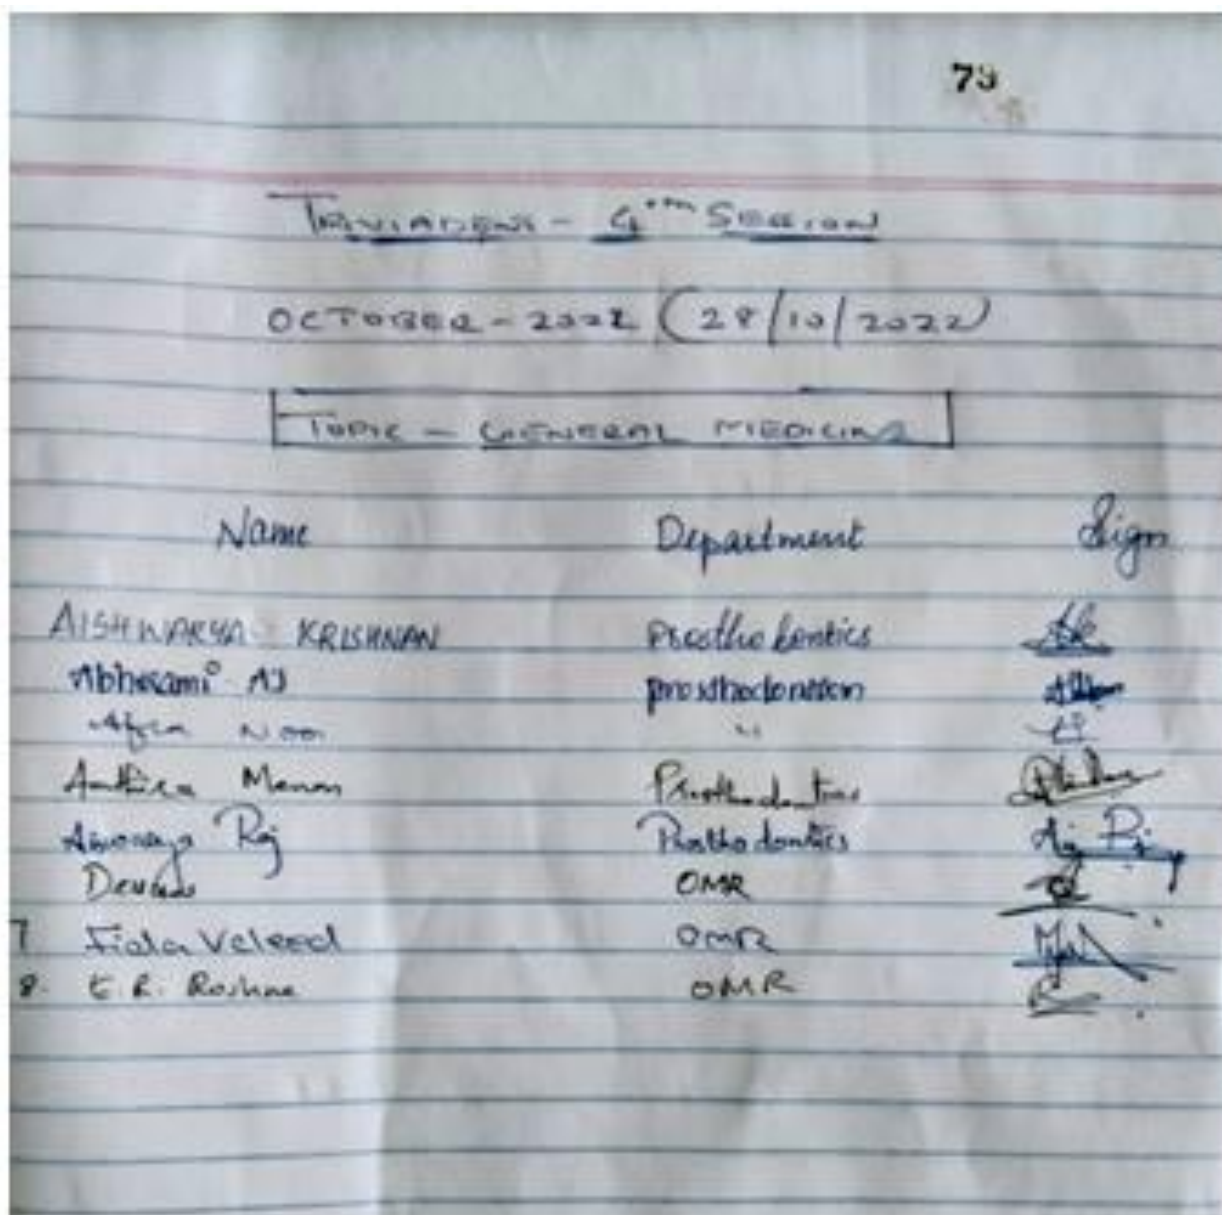 73
TRIVIADENS - 4th SESSION
OCTOBER - 2022 (28/10/2022)
TOPIC - GENERAL MEDICINE
Name Department Sign
AISHWARYA KRISHNAN Prosthodontics
Abhirami AJ prosthodontics
Afra Noor "
Menon Prosthodontics
Raj Prosthodontics
OMR
7 Fida OMR
8. E. R. Roshna OMR